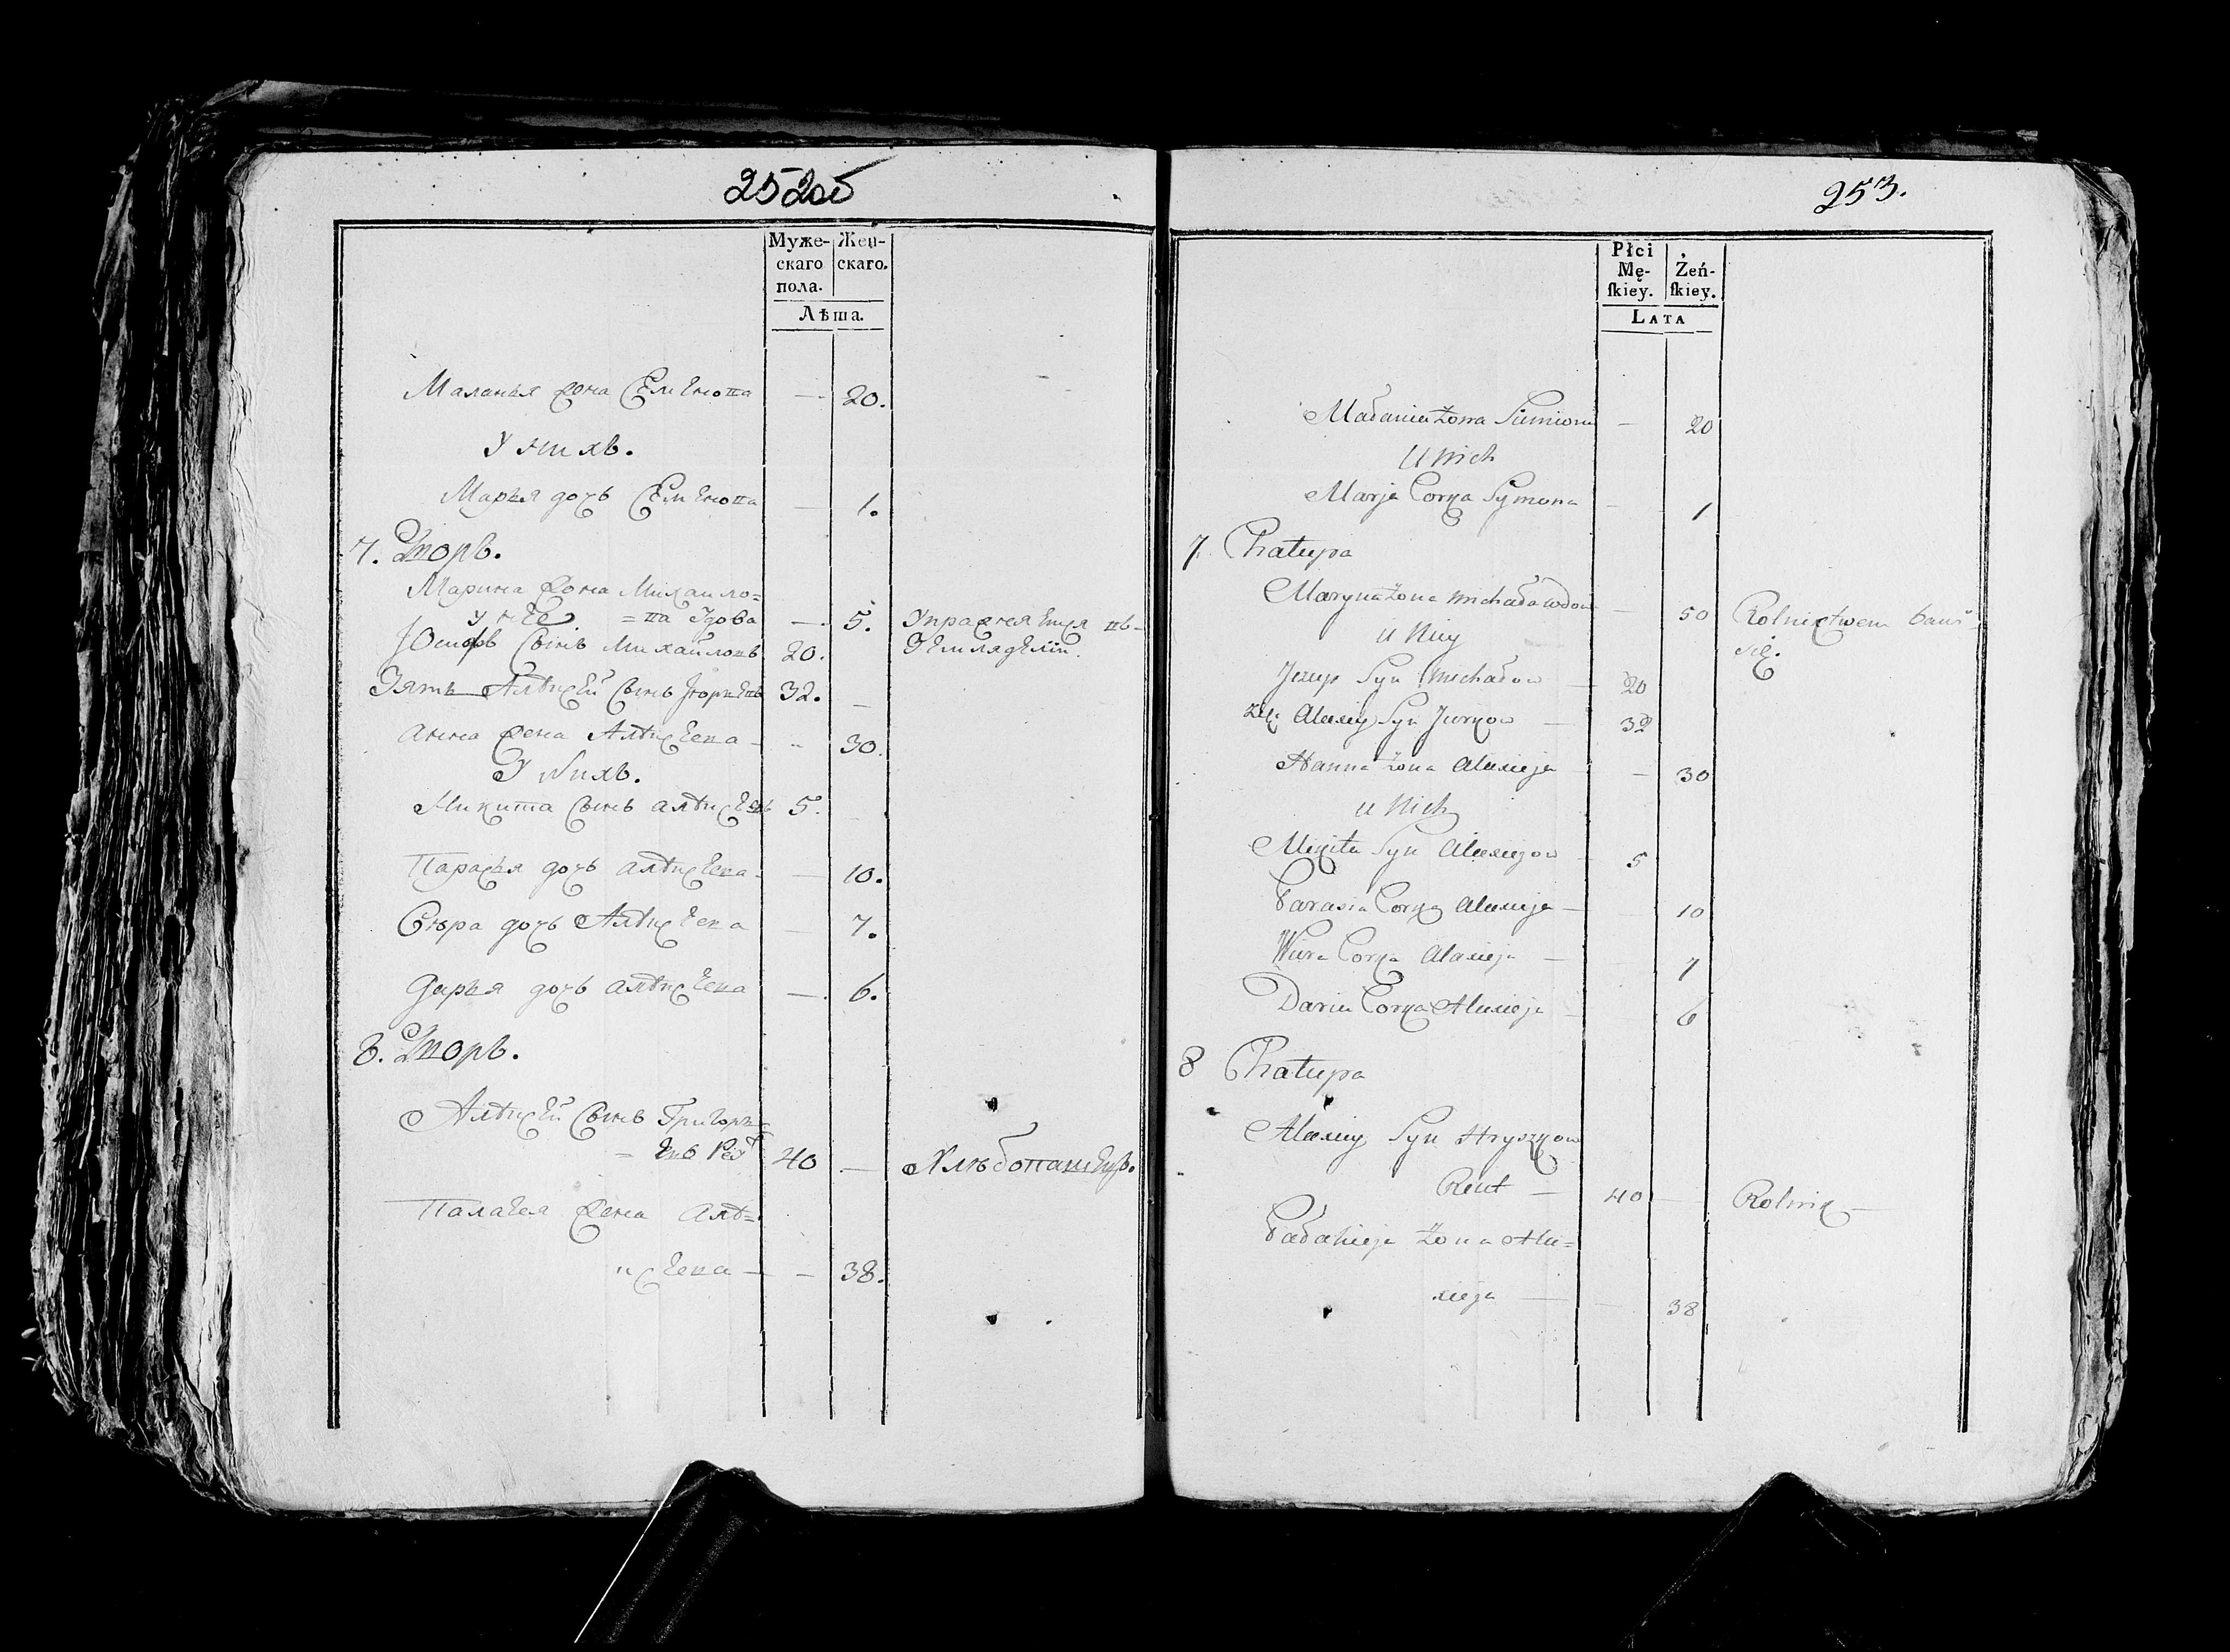 252об
Муже-
скаго
пола.
Жен-
скаго.
Лѣта.
Маланья жена Семенова — 20.
У нихъ.
Марья дочь Семенова — 1.
7. Дворъ.
Марина жена Михайло=
У нее =ва вдова — 5. Упражняется въ
Юсифъ Сынъ Михайловъ 20. Земляделіи.
Зять Алѣксей Сынъ Юрьевъ 32. —
Анна жена Алѣксеева — 30.
У Нихъ.
Микита Сынъ Алѣксеевъ 5. —
Парасья дочь Алѣксеева — 10.
Вѣра дочь Алѣксеева — 7.
Дарья дочь Алѣксеева — 6.
8. Дворъ.
Алѣксей Сынъ Григорь=
=евъ 40 — Хлѣбопашецъ.
Палагея жена Алѣ=
ксеева — — 38.
253.
Płci
Mę-
ſkiey.
Żeń-
ſkiey.
LATA
Małania Żona Siemiona — 20
U Nich
Marja Corka Symona — 1
7. Chałupa
Maryna Żona Michała wdowa — 50 Rolnictwem bawi
U Niey się.
Jezup Syn Michałow — 20
Zięć Alexiey Syn Jurkow — 32
Hanna Żona Alexieja — 30
U Nich
Mikita Syn Alexiejow — 5
Parasia Corka Alexieja — 10
Wiera Corka Alexieja — 7
Daria Corka Alexieja — 6
8 Chałupa
Alexiey Syn Hryszkow
Reut — 40 — Rolnik —
Pałahieja Żona Ale=
xieja — — 38